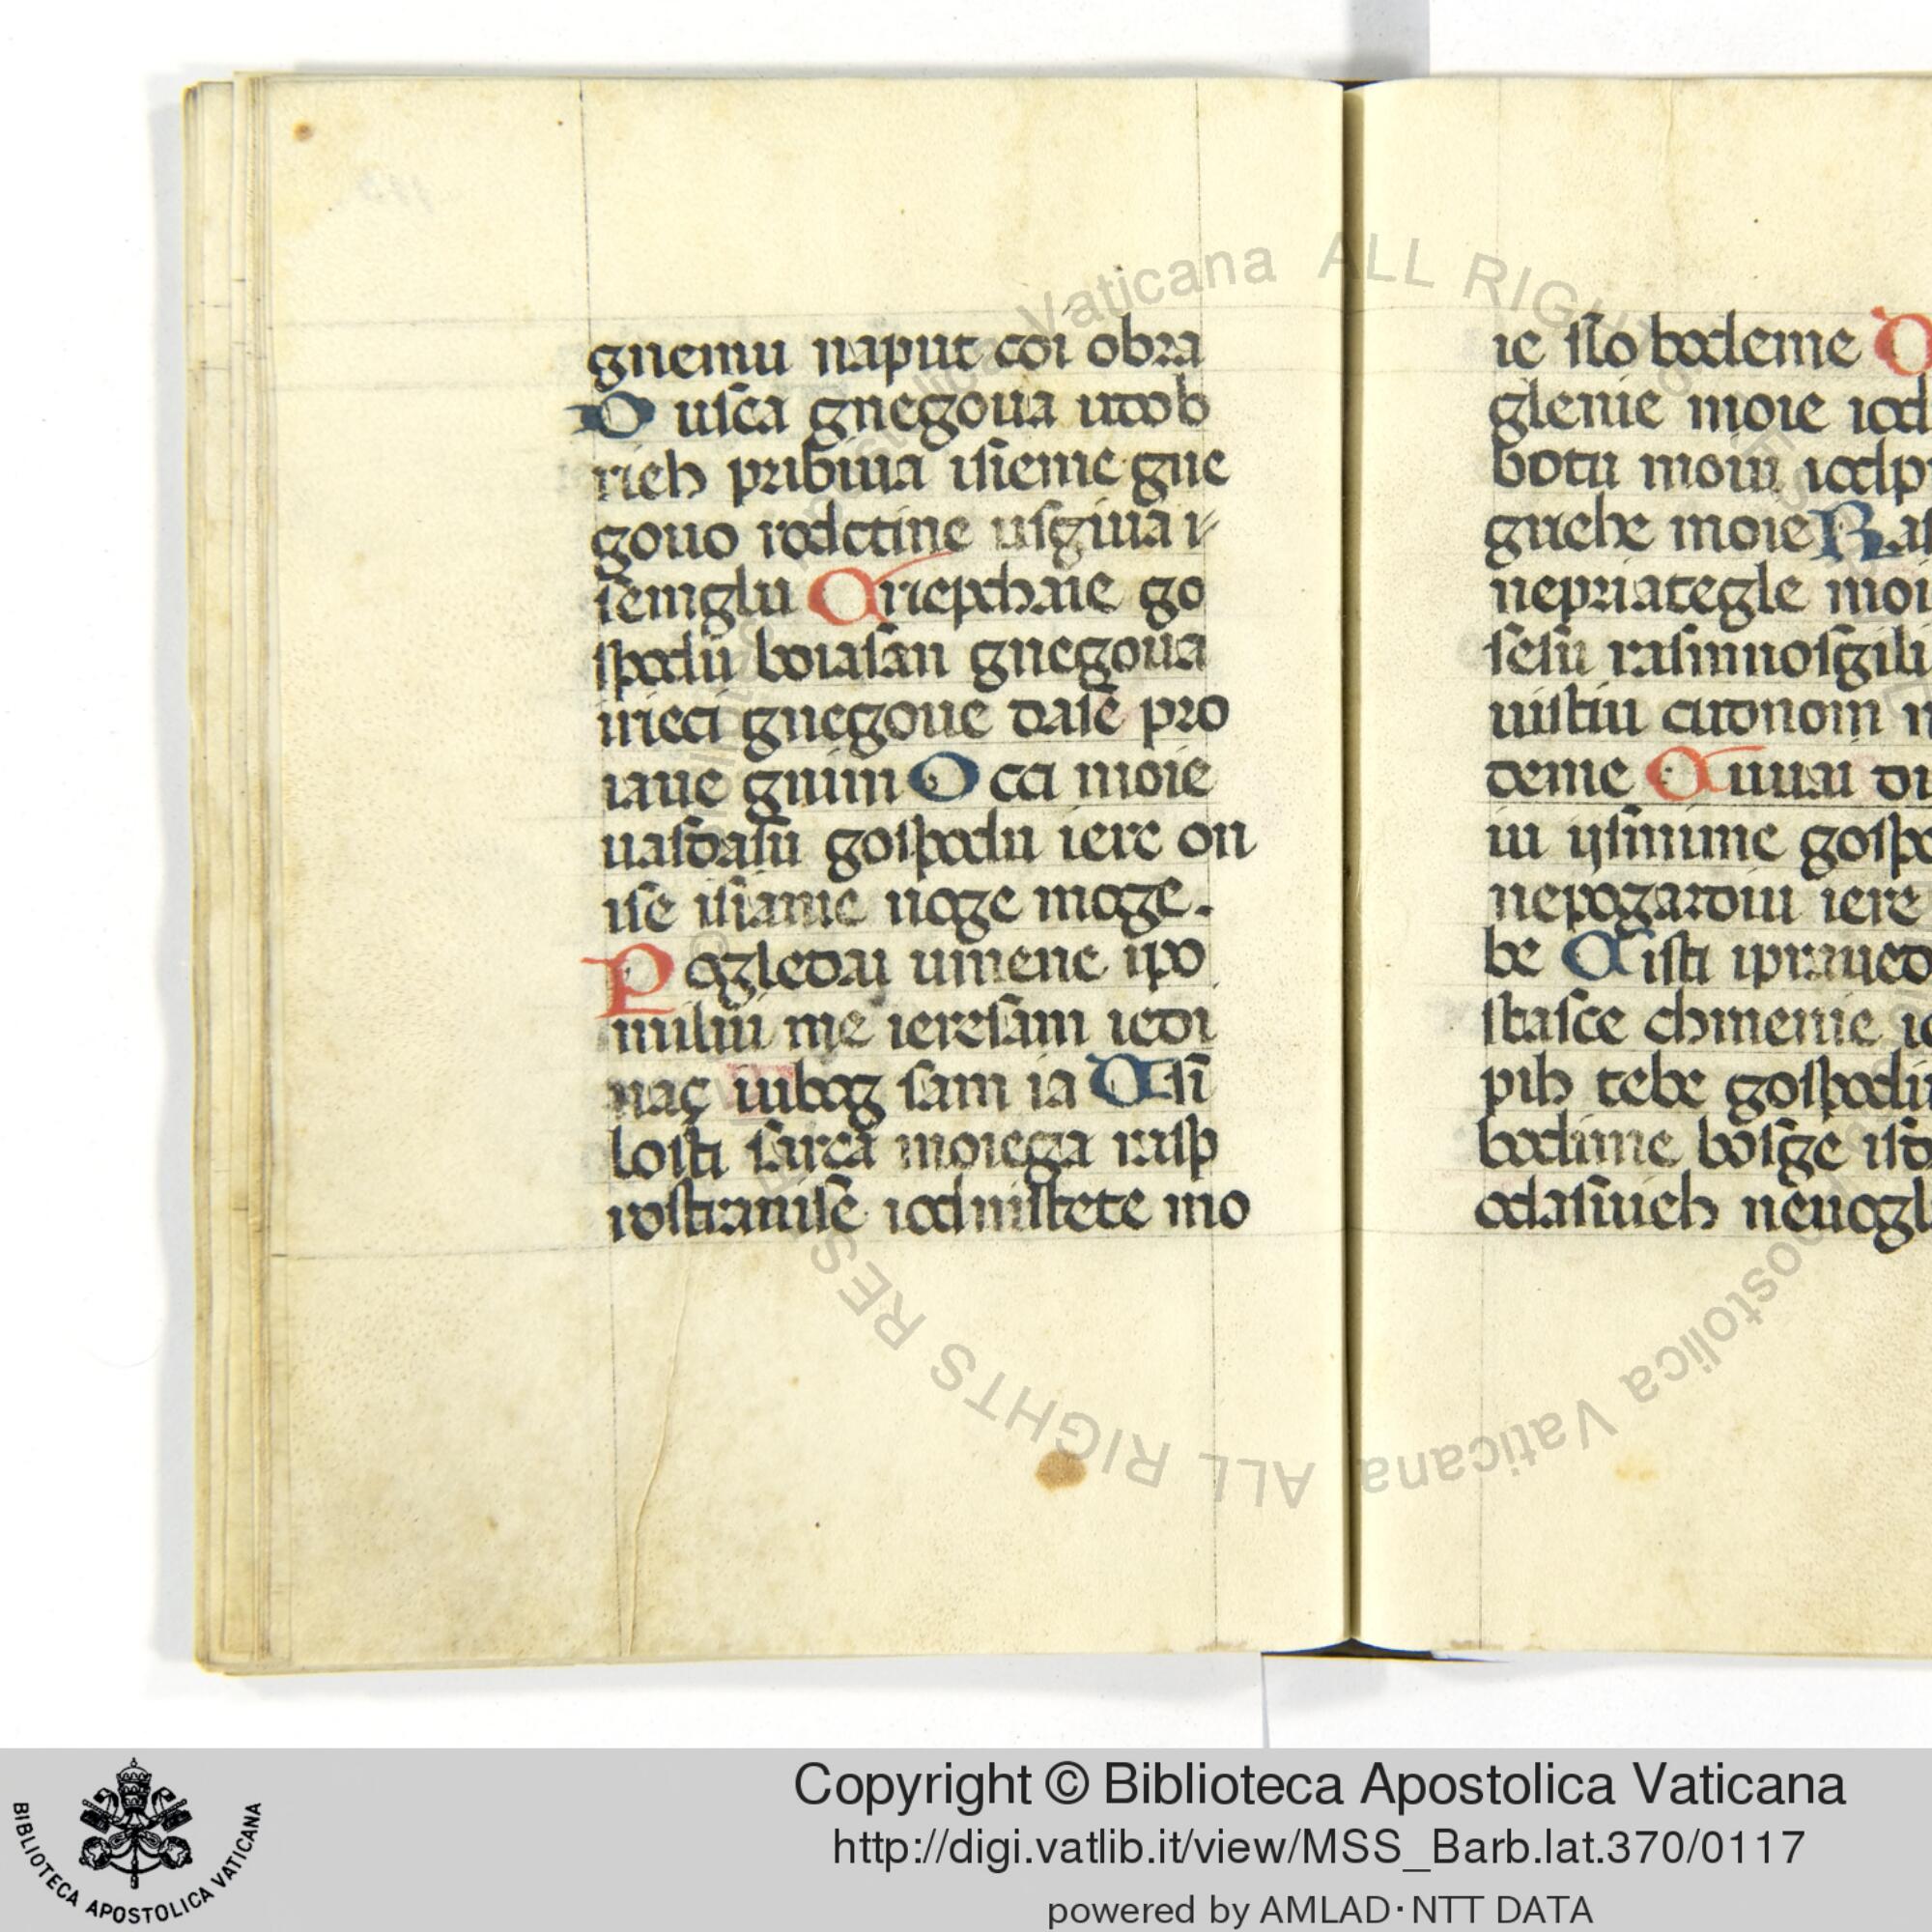 gnemu naput coi obra
D uſca gnegoua udob
rieh pribiua iſieme gne
gouo rodctine uſgiua i
ſemglu Criepchaie go
ſpodin boiaſan gnegoua
irieci gnegoue daſē pro
iaue gnim O cci moie
uaſdaſu goſpodu iere on
iſe iſiame noge moge.
P ogledai umene ipo
miluu me iereſam iedi
naç iubog ſam ia D oſi
loſti ſarca moiega raſp
roſtraniſe iod niſtete mo
ie ſlo bodeme
glenie moie iod
botu moiu iodp
griehe moie Raſ
nepriategle moi
ſeſu raſmnoſgili
uiſtiu
deme Cuuai
iu iſmime goſpo
nepogardiu iere
be Ciſti ipraued
ſtaſce chmenie
pih tebe goſpodi
bodime boſge iſd
odaſiueh neuogl
Copyright © Biblioteca Apostolica Vaticana
http://digi.vatlib.it/view/MSS_Barb.lat.370/0117
powered by AMLAD·NTT DATA
BIBLIOTECA APOSTOLICA VATICANA